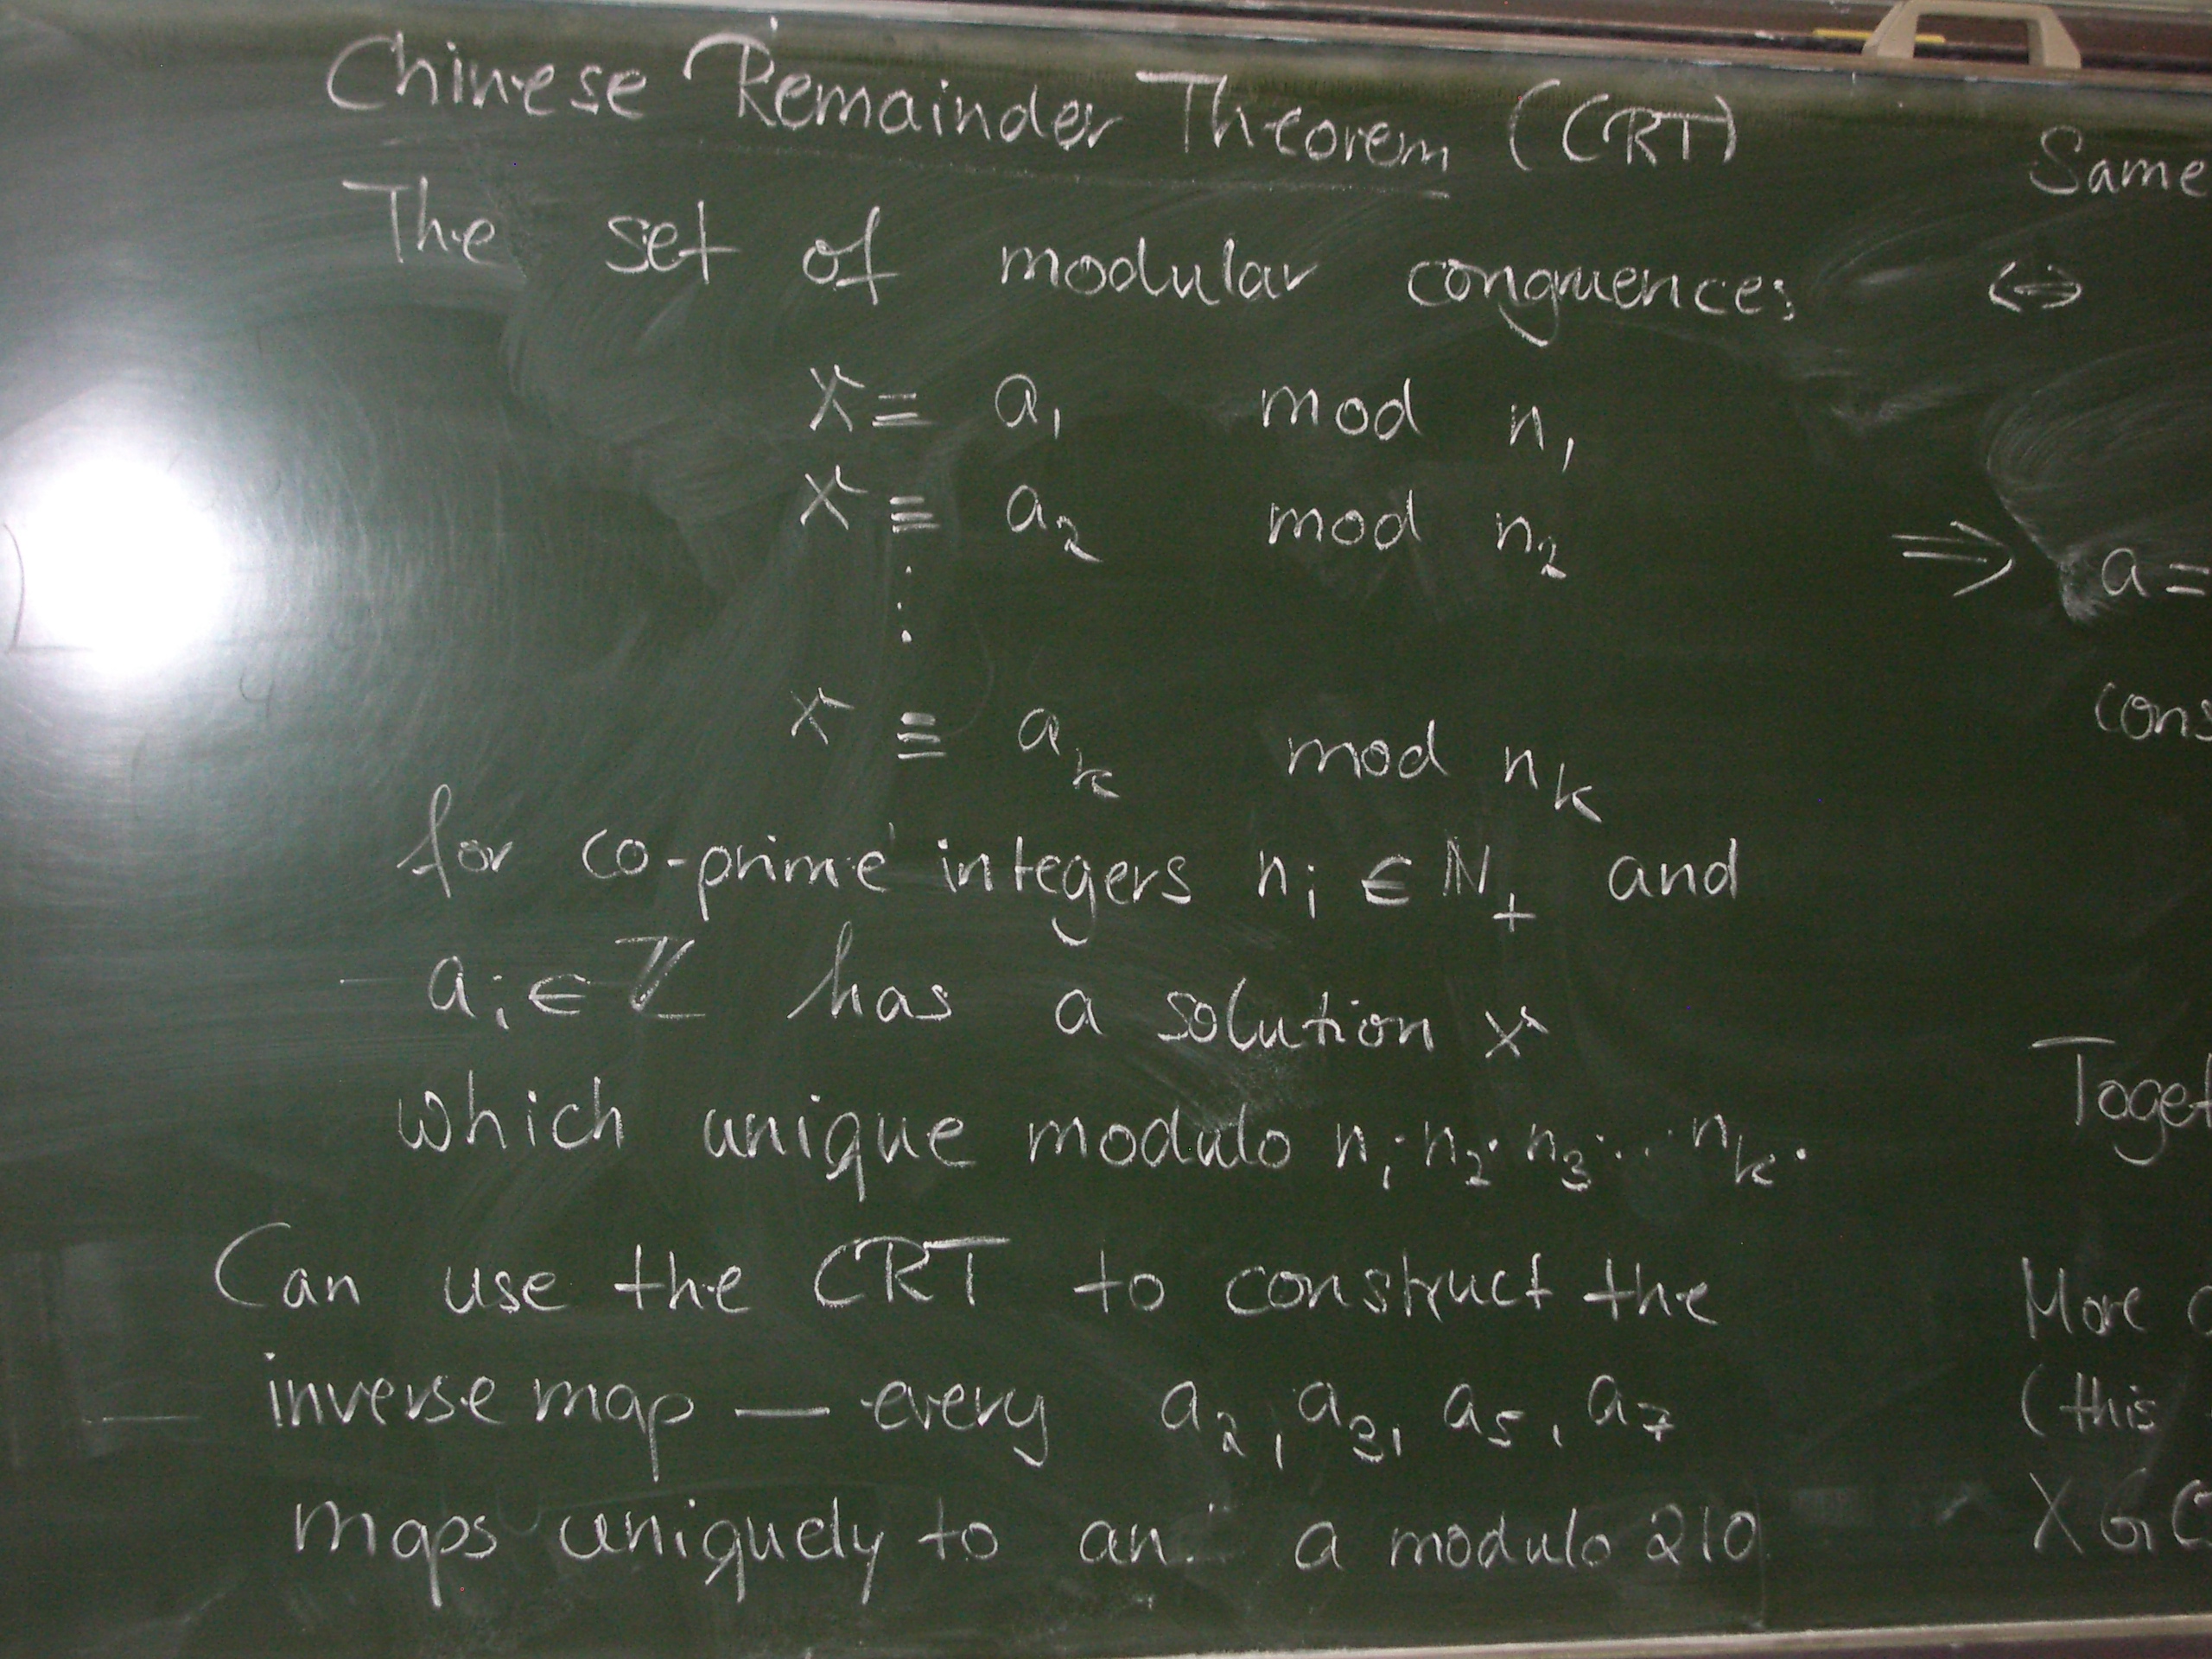 Chinese Remainder Theorem (CRT)
The set of modular congruences
x ≡ a₁ mod n₁
x ≡ a₂ mod n₂
⋮
x ≡ aₖ mod nₖ
for co-prime integers nᵢ ∈ ℕ₊ and
aᵢ ∈ ℤ has a solution x
which unique modulo n₁·n₂·n₃·...nₖ.
Can use the CRT to construct the
inverse map — every a₂, a₃, a₅, a₇
maps uniquely to an a modulo 210
Same
⇔
⇒ a =
More
(this